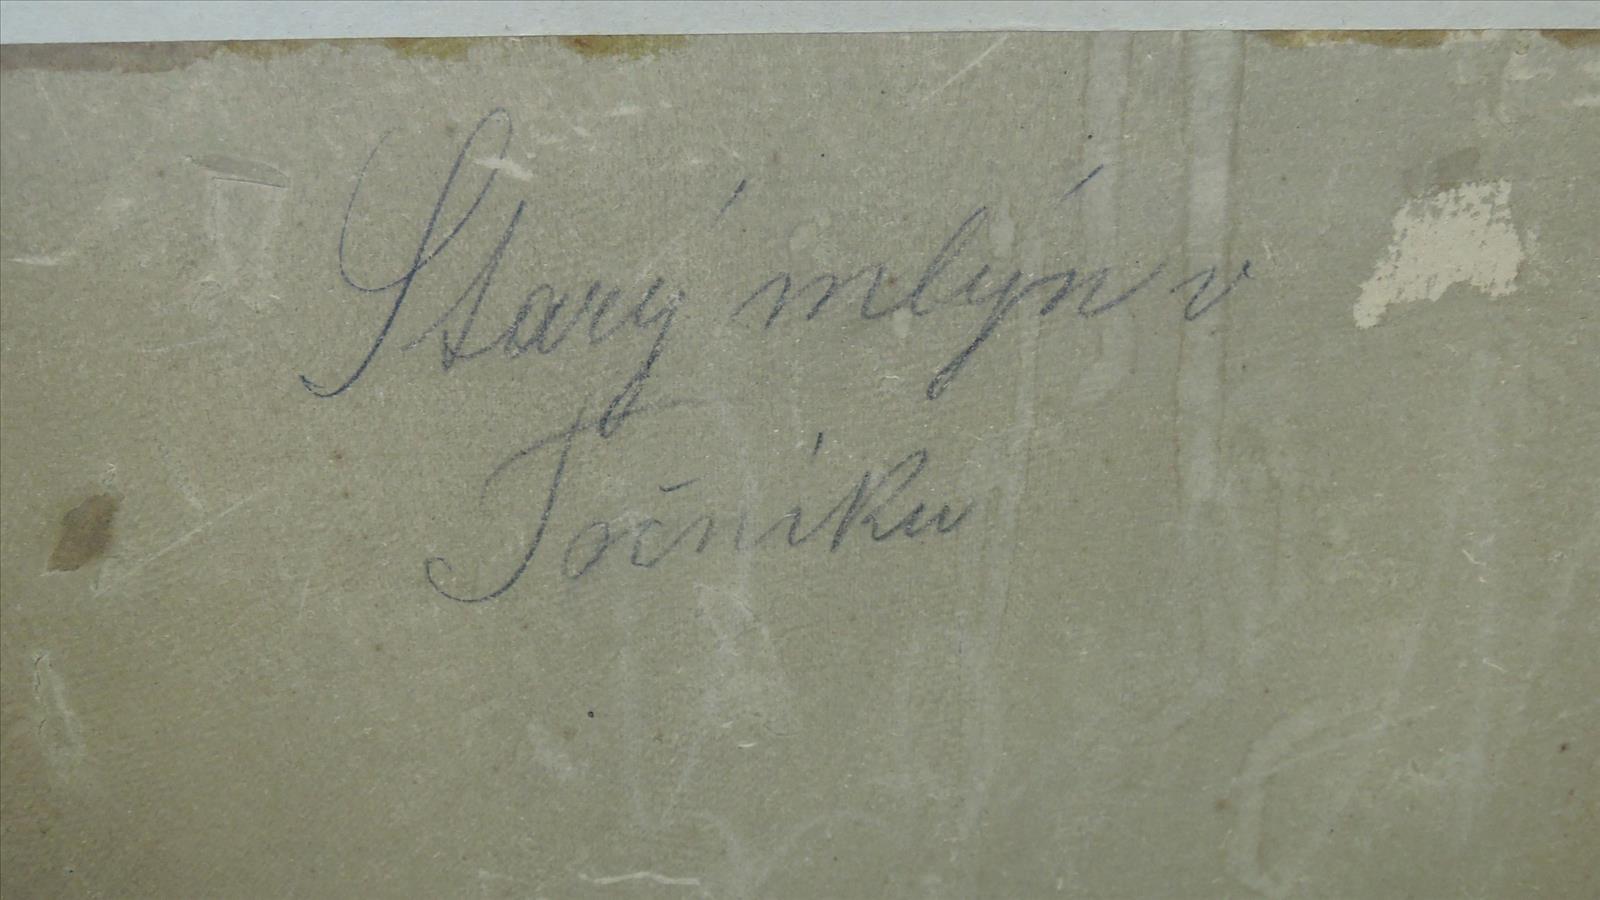 Starý mlýn v
Točníku